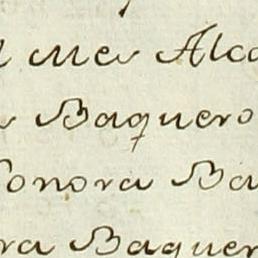 Me Alca
Baquero
onora Ba
ra Baquer